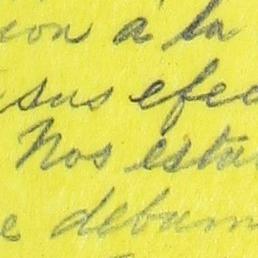 ion á la
sus efec
Nos estu
e debum